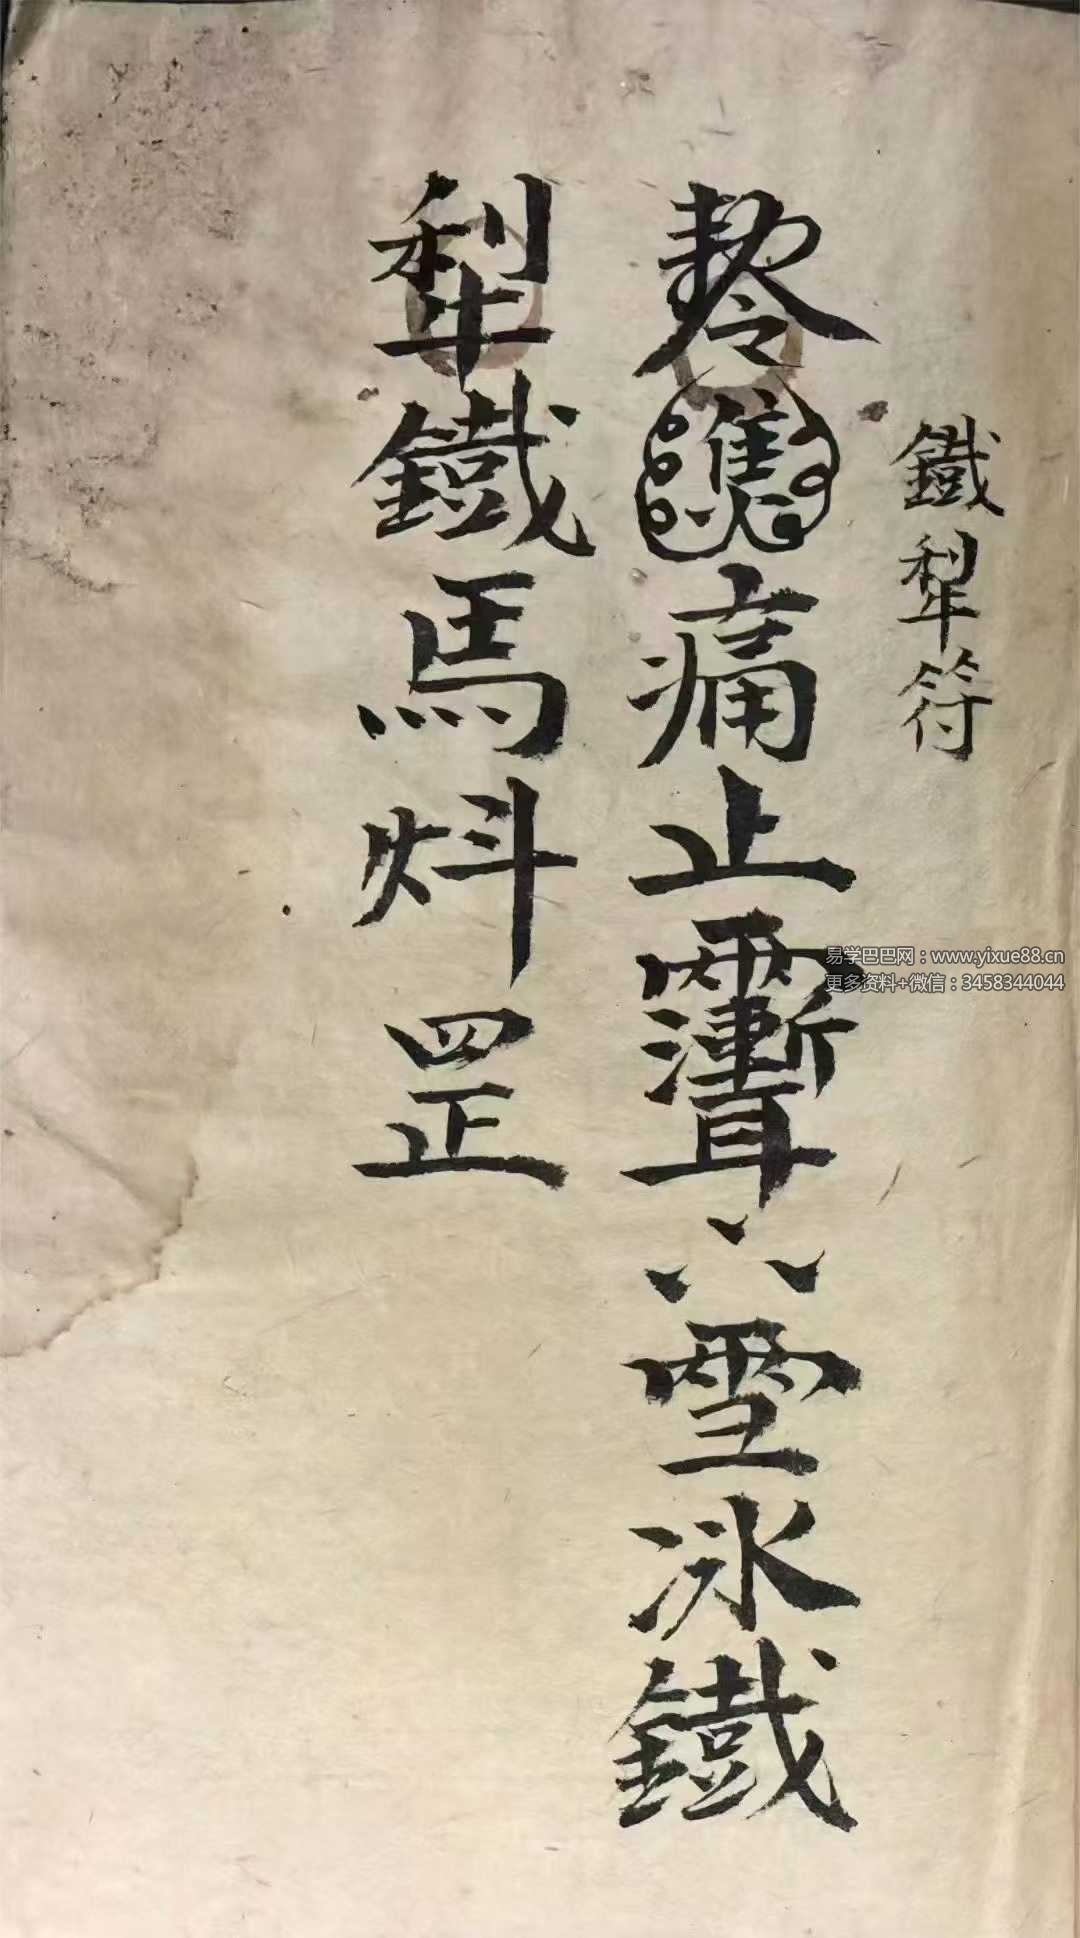 鐵犁符
痛止
六雪冰鐵
犁鐵馬㪷罡
易学巴巴网：www.yixue88.cn
更多资料+微信：3458344044